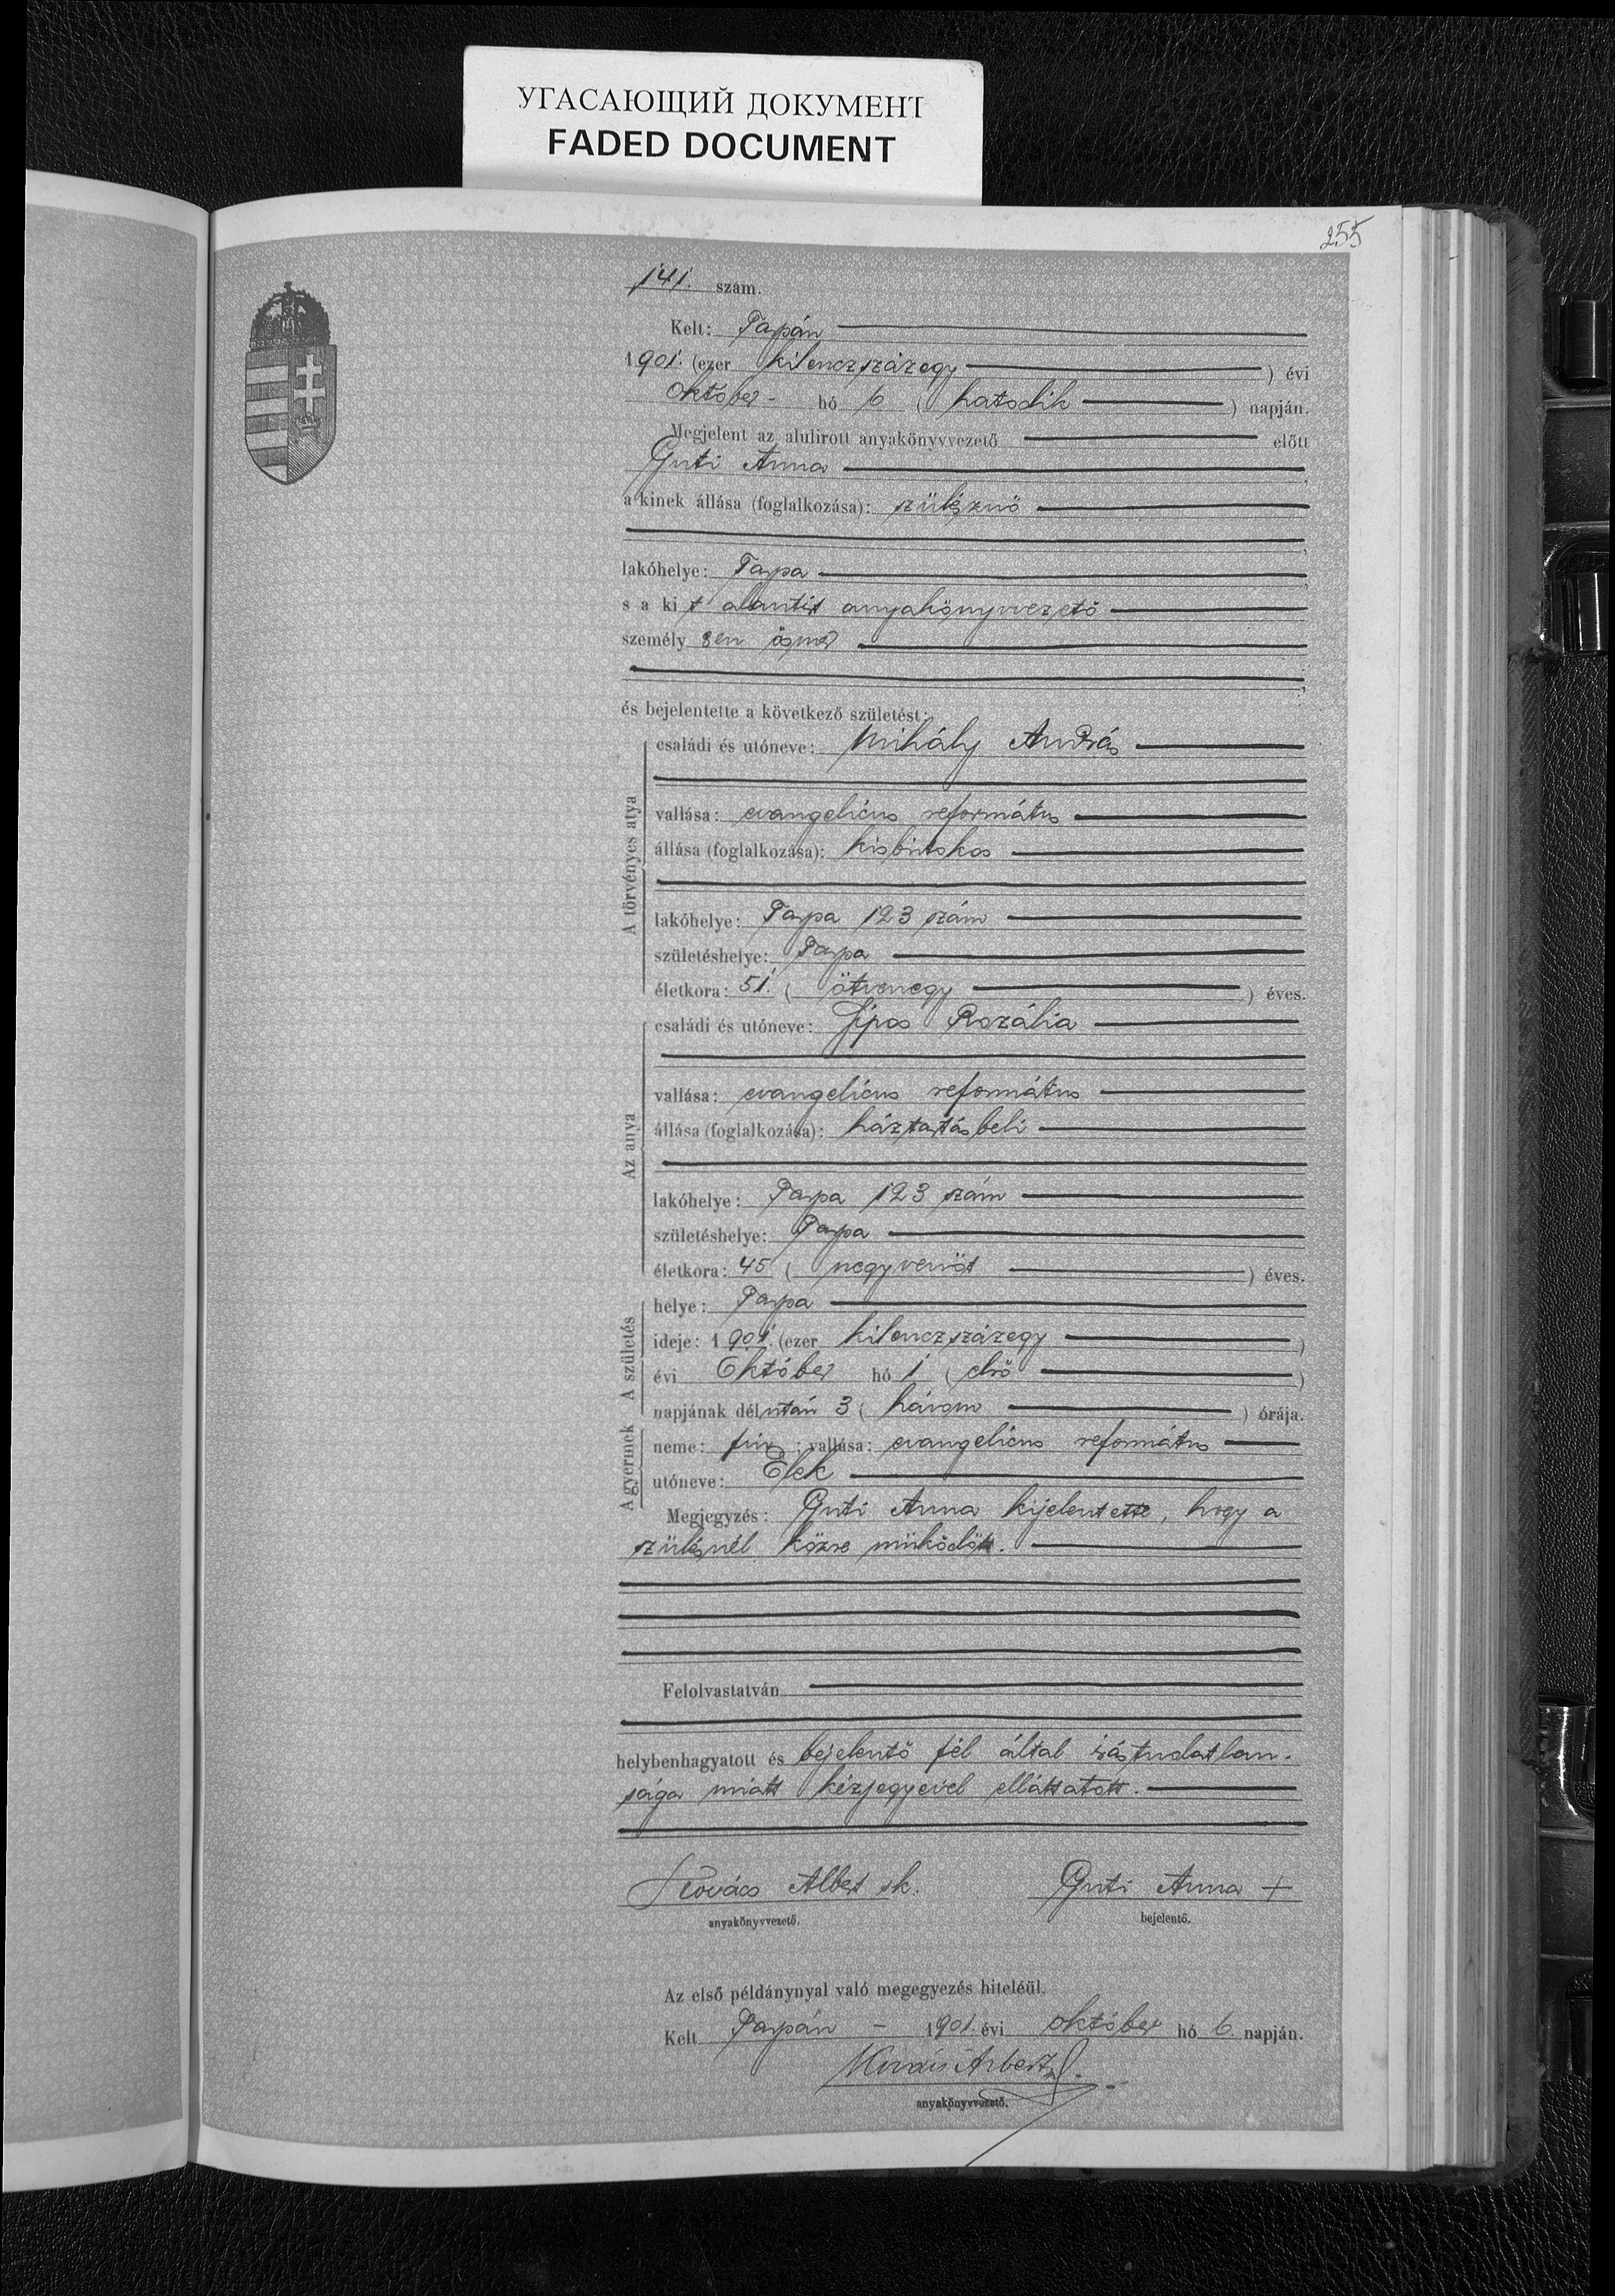 УГАСАЮЩИЙ ДОКУМЕНТ
FADED DOCUMENT
255
141. szám.
Kelt: Tarpán
1901. (ezer kilenczszázegy ) évi
Október - hó 6 ( hatodik ) napján.
Megjelent az alulirott anyakönyvvezető előtt
Guti Anna ,
a kinek állása (foglalkozása): szülésznő
,
lakóhelye: Tarpa ,
s a kit alantirt anyakönyvvezető
személyesen ösmer
,
és bejelentette a következő születést:
A törvényes atya
családi és utóneve: Mihály András
vallása: evangelicus református
állása (foglalkozása): kisbirtokos
lakóhelye: Tarpa 123 szám
születéshelye: Tarpa
életkora: 51. ( ötvenegy ) éves.
Az anya
családi és utóneve: Sipos Rozália
vallása: evangelicus református
állása (foglalkozása): háztartásbeli
lakóhelye: Tarpa 123 szám
születéshelye: Tarpa
életkora: 45 ( negyvenöt ) éves.
A születés
helye: Tarpa
ideje: 1901. (ezer kilenczszázegy )
évi Október hó 1 ( első )
napjának délután 3 ( három ) órája.
A gyermek
neme: fiu ; vallása: evangelicus református
utóneve: Elek
Megjegyzés: Guti Anna kijelentette, hogy a
szülésnél közre működött.
Felolvastatván
helybenhagyatott és bejelentő fél által irástudatlan-
sága miatt kézjegyével elláttatott.
Kovács Albert sk. Guti Anna +
anyakönyvvezető. bejelentő.
Az első példánynyal való megegyezés hiteléül.
Kelt Tarpán - 1901. évi október hó 6. napján.
Kovács Albert
anyakönyvvezető.